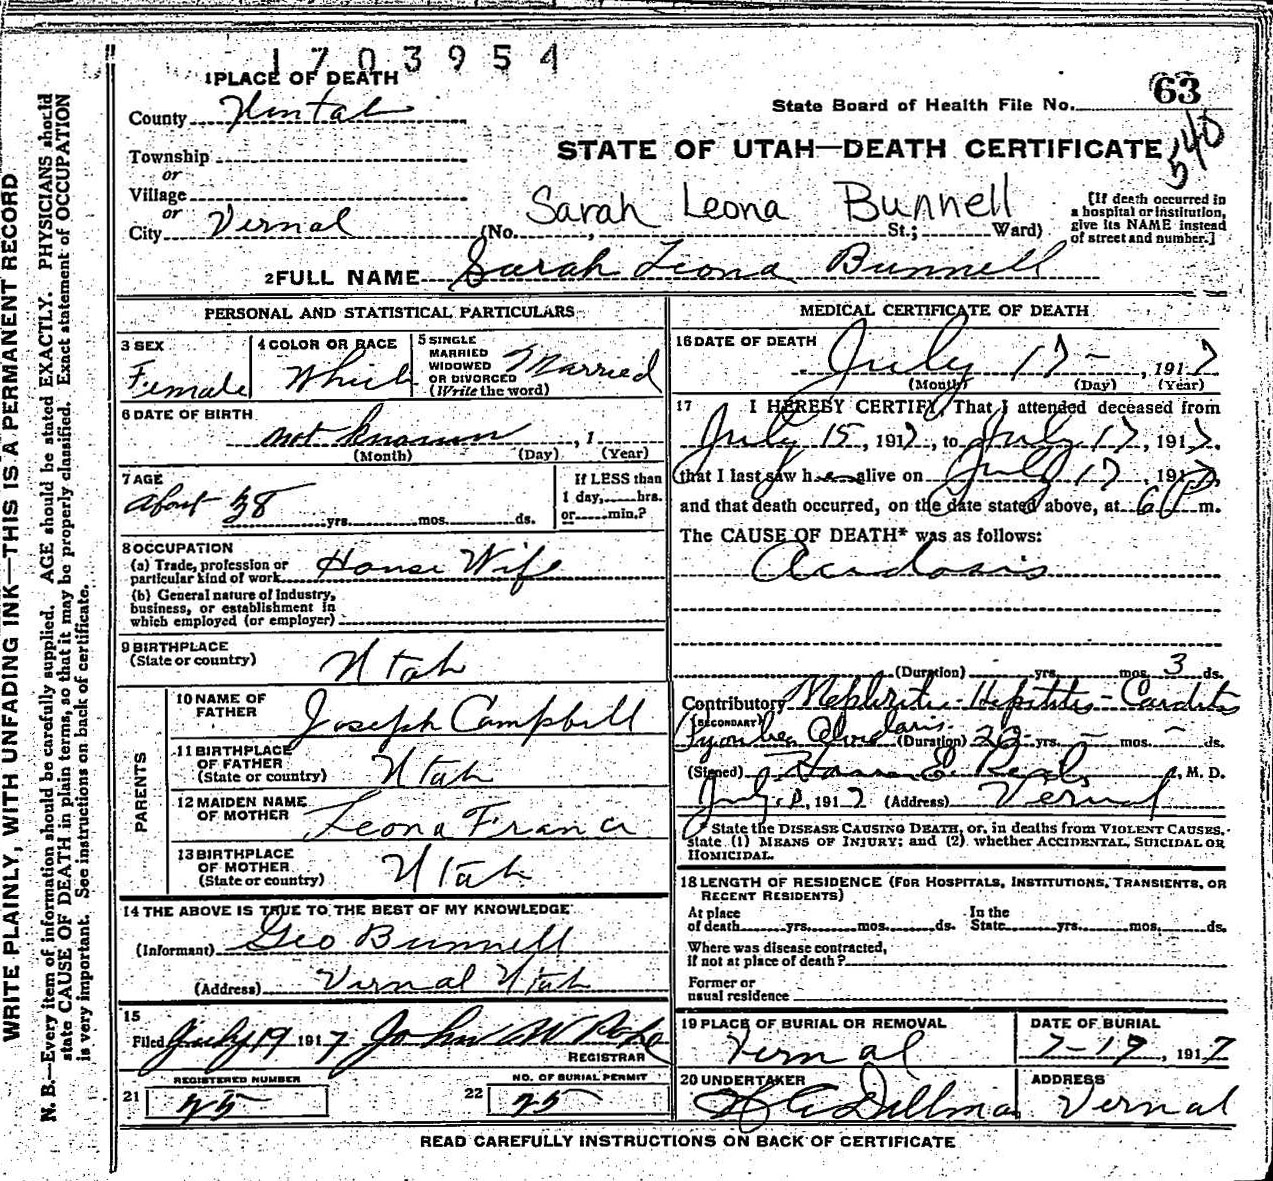 1703954
1 PLACE OF DEATH
County Uintah
State Board of Health File No. 63
540
Township
or
Village
or
City Vernal
STATE OF UTAH—DEATH CERTIFICATE
Sarah Leona Bunnell
(No. , St.; Ward)
[If death occurred in
a hospital or institution,
give its NAME instead
of street and number.]
2 FULL NAME Sarah Leona Bunnell
PERSONAL AND STATISTICAL PARTICULARS
3 SEX
Female
4 COLOR OR RACE
White
5 SINGLE
MARRIED
WIDOWED
OR DIVORCED
(Write the word)
Married
6 DATE OF BIRTH
not known , 1
(Month) (Day) (Year)
7 AGE
About 38
yrs. mos. ds.
If LESS than
1 day, hrs.
or min.?
8 OCCUPATION
(a) Trade, profession or
particular kind of work House Wife
(b) General nature of Industry,
business, or establishment in
which employed (or employer)
9 BIRTHPLACE
(State or country) Utah
PARENTS
10 NAME OF
FATHER Joseph Campbell
11 BIRTHPLACE
OF FATHER
(State or country) Utah
12 MAIDEN NAME
OF MOTHER Leona
13 BIRTHPLACE
OF MOTHER
(State or country) Utah
14 THE ABOVE IS TRUE TO THE BEST OF MY KNOWLEDGE
(Informant) Geo Bunnell
(Address) Vernal Utah
15
Filed July 19 1917 John W Pope
REGISTRAR
REGISTERED NUMBER
21 25
NO. OF BURIAL PERMIT
22 25
MEDICAL CERTIFICATE OF DEATH
16 DATE OF DEATH
July 17 - , 1917
(Month) (Day) (Year)
17 I HEREBY CERTIFY, That I attended deceased from
July 15, 1917, to July 17, 1917.
that I last saw her alive on July 17, 1917.
and that death occurred, on the date stated above, at 6 P m.
The CAUSE OF DEATH* was as follows:
Acidosis
(Duration) yrs. mos. 3 ds.
Contributory Nephritis - Hepititis - Carditis
(SECONDARY)
(Duration) yrs. - mos. - ds.
(Signed) , M. D.
July , 1917 (Address) Vernal
* State the DISEASE CAUSING DEATH, or, in deaths from VIOLENT CAUSES,
state (1) MEANS OF INJURY; and (2) whether ACCIDENTAL, SUICIDAL OR
HOMICIDAL.
18 LENGTH OF RESIDENCE (FOR HOSPITALS, INSTITUTIONS, TRANSIENTS, OR
RECENT RESIDENTS)
At place
of death yrs. mos. ds.
In the
State yrs. mos. ds.
Where was disease contracted,
if not at place of death?
Former or
usual residence
19 PLACE OF BURIAL OR REMOVAL
Vernal
DATE OF BURIAL
7-19, 1917
20 UNDERTAKER
Dillman
ADDRESS
Vernal
READ CAREFULLY INSTRUCTIONS ON BACK OF CERTIFICATE
WRITE PLAINLY, WITH UNFADING INK—THIS IS A PERMANENT RECORD
N. B.—Every item of information should be carefully supplied. AGE should be stated EXACTLY. PHYSICIANS should
state CAUSE OF DEATH in plain terms, so that it may be properly classified. Exact statement of OCCUPATION
is very important. See instructions on back of certificate.